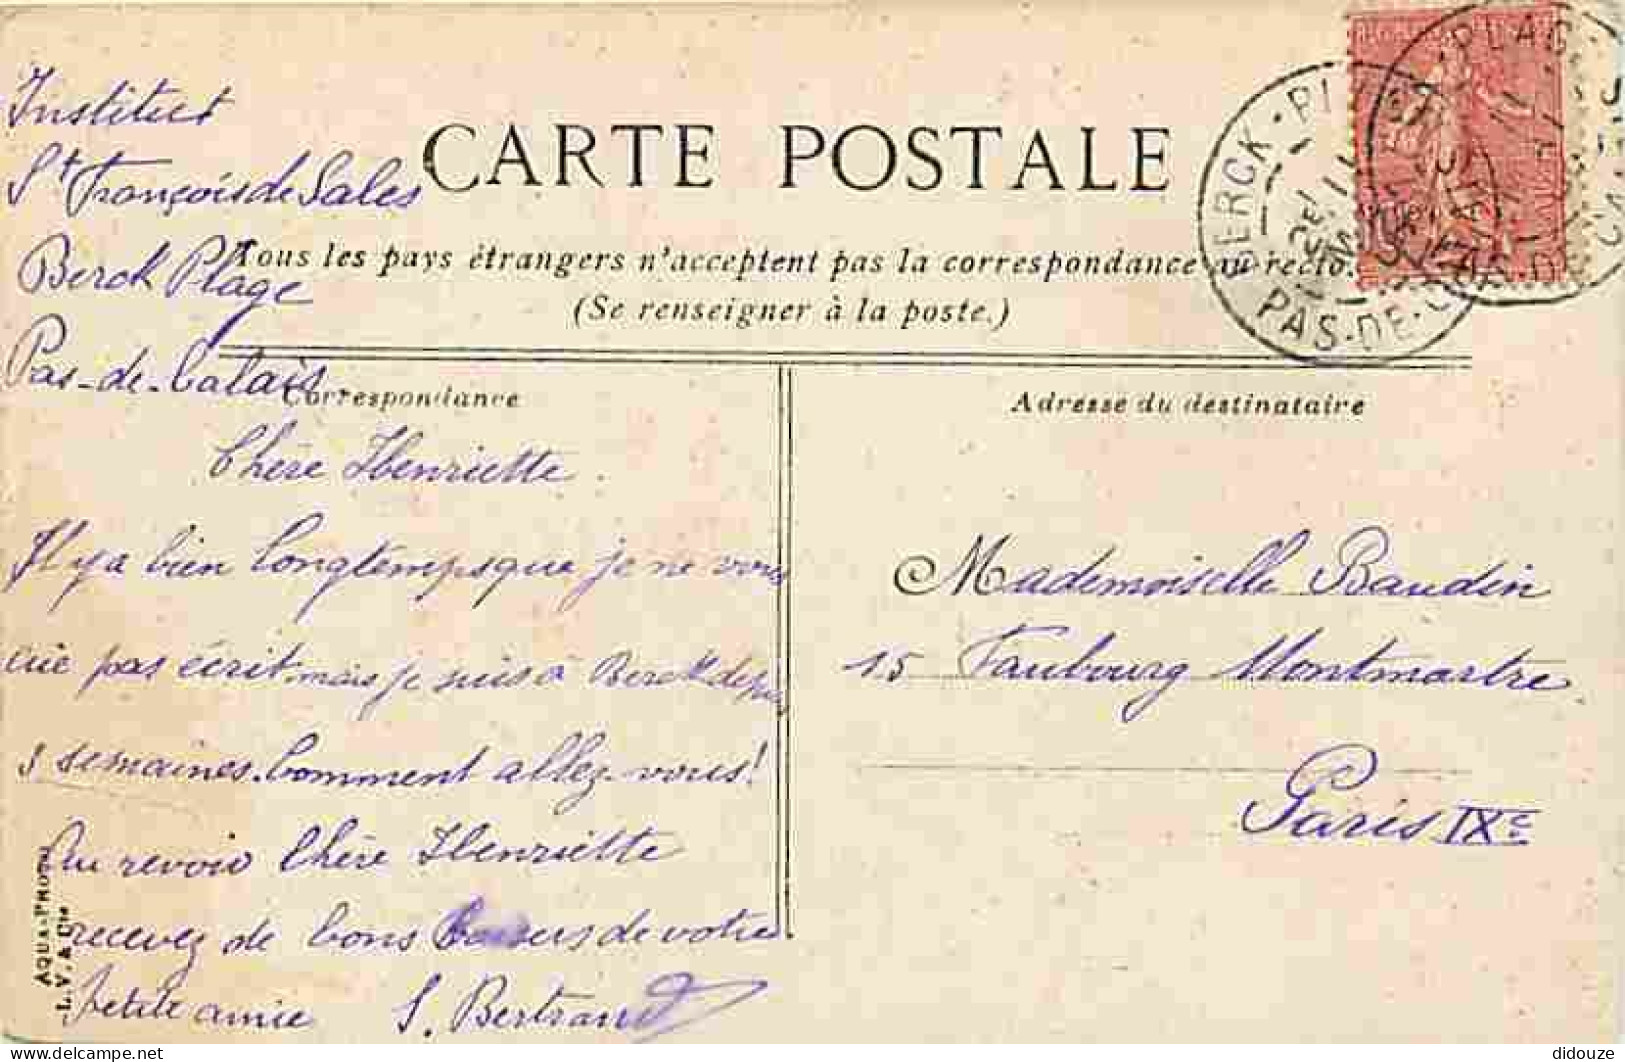 Institut
St François de Sales
Berck Plage
Pas-de-Calais
CARTE POSTALE
Tous les pays étrangers n'acceptent pas la correspondance au recto.
(Se renseigner à la poste.)
Correspondance
Chère Henriette.
Il y a bien longtemps que je ne vous
pas écrit mais je suis à Berck depuis
semaines. Comment allez-vous!
Au revoir Chère Henriette
recevez de bons baisers de votre
petite amie S. Bertrand
AQUA-PHOTO
L. V. & Cie
BERCK·PLAGE
PAS-DE-CALAIS
Adresse du destinataire
Mademoiselle Baudin
15 Faubourg Montmartre
Paris IXe
didouze
delcampe.net